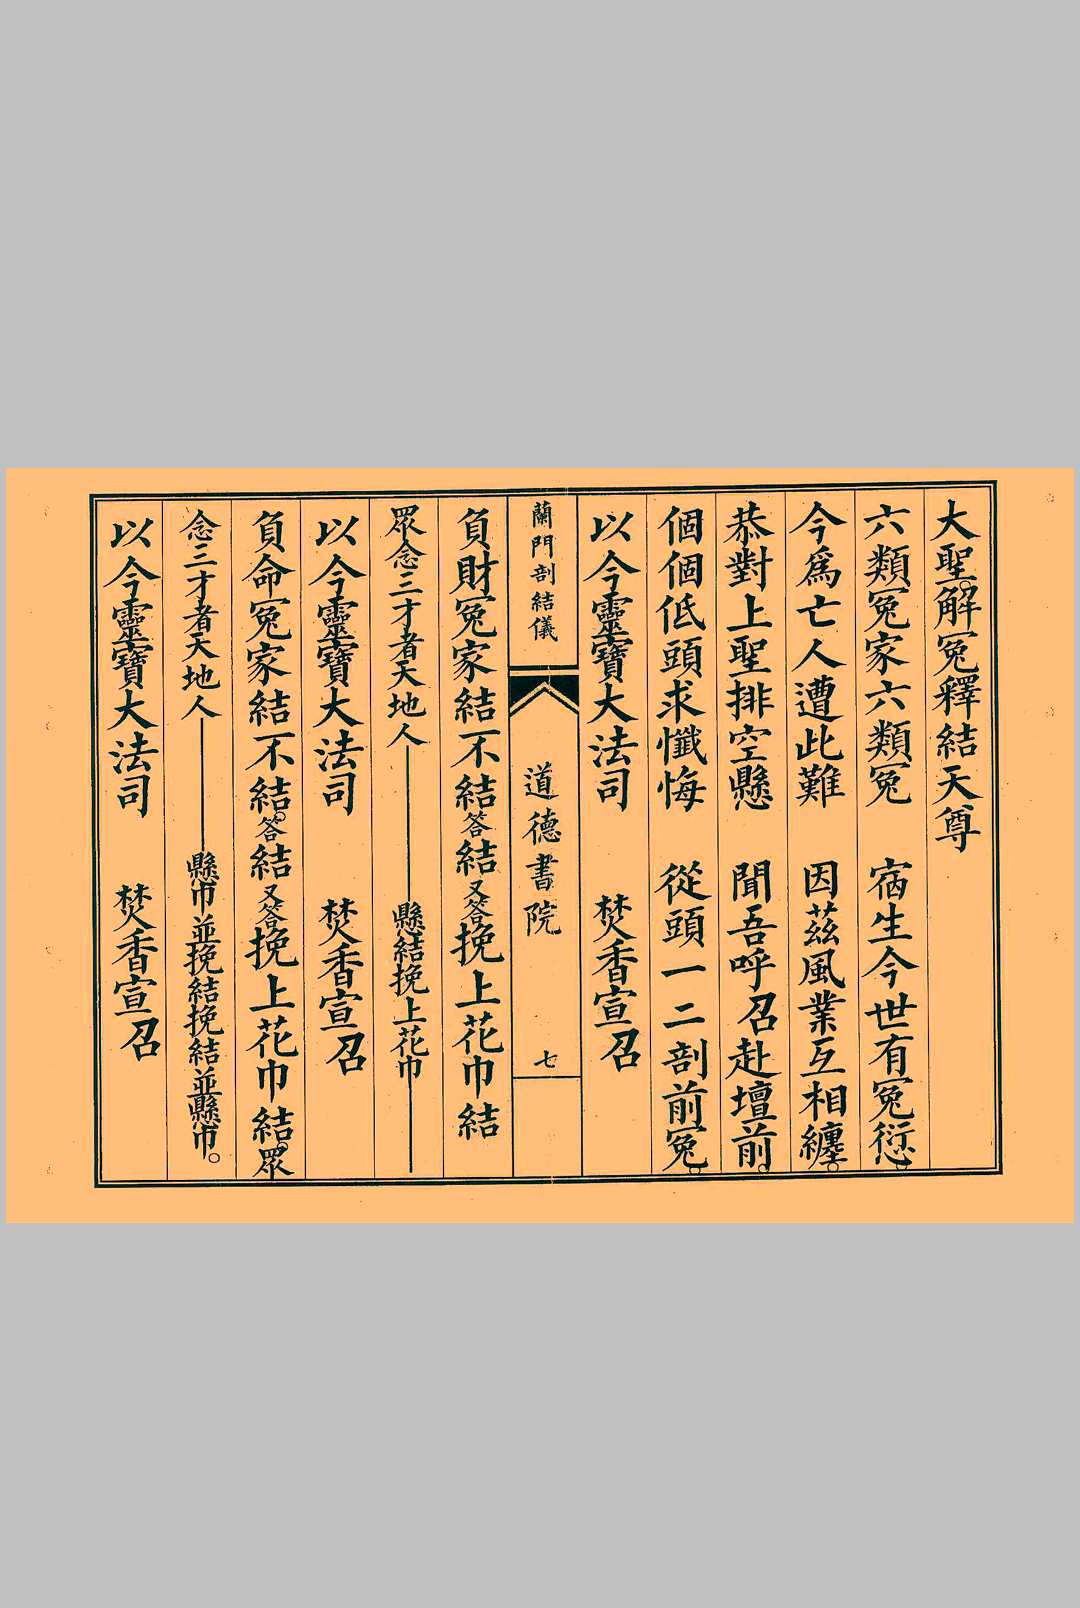 大聖。解冤釋結天尊
六類冤家六類冤　宿生今世有冤愆。
今爲亡人遭此難　因茲風業互相纏。
恭對上聖排空懸　聞吾呼召赴壇前。
個個低頭求懺悔　從頭一二剖前冤。
以今靈寶大法司　焚香宣召
蘭門剖結儀　道德書院　七
負財冤家結不結答結又答挽上花巾結
眾念三才者天地人——懸結挽上花巾——
以今靈寶大法司　焚香宣召
負命冤家結不結。答結又答挽上花巾結。眾
念三才者天地人——懸巾並挽結挽結並懸巾。
以今靈寶大法司　焚香宣召